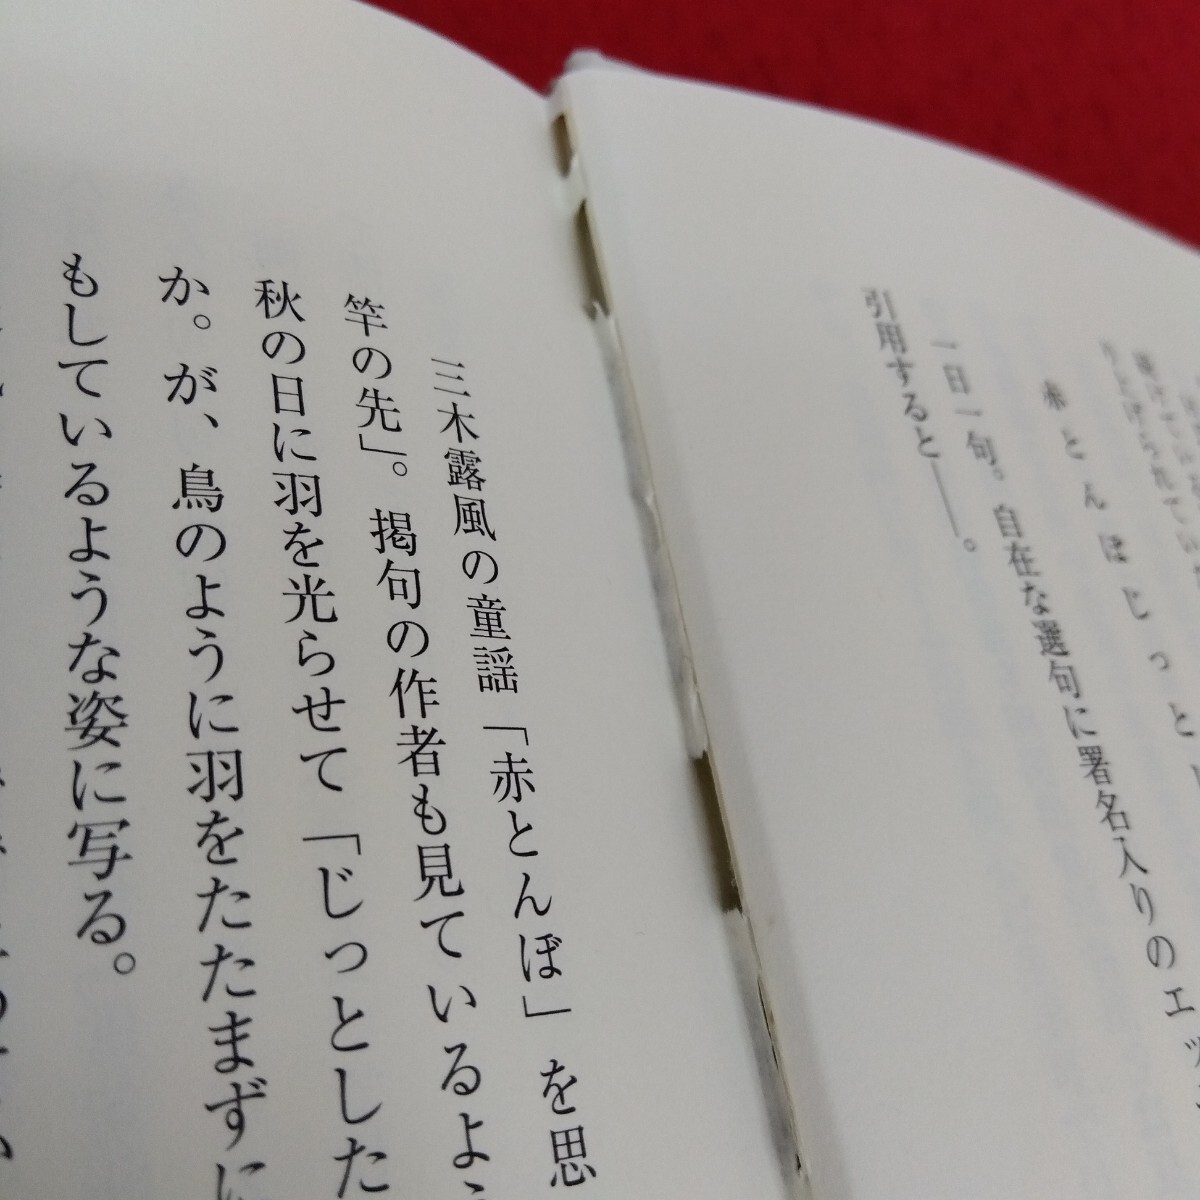 赤とんぼじっと
一日一句。自在な選句に署名入りのエッ
引用すると――。
三木露風の童謡「赤とんぼ」を思
竿の先」。掲句の作者も見ているよう
秋の日に羽を光らせて「じっとした
か。が、鳥のように羽をたたまずに
もしているような姿に写る。